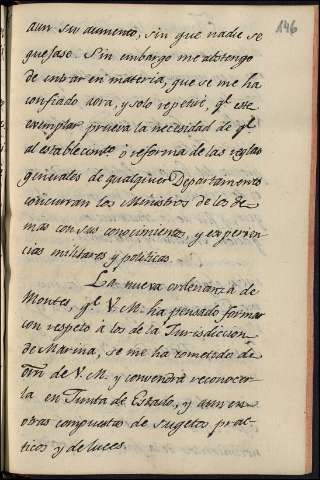 146
aun su aumento, sin que nadie se
quejase. Sin embargo me abstengo
de entrar en materia, que se me ha
confiado aora, y solo repetiré, qe. este
exemplar prueva la necesidad de qe.
al establecimto. ó reforma de las reglas
generales de qualquier Departamento
concurran los Ministros de los de
mas con sus conocimientos, y experien
cias militares y politicas.
La nueva ordenanza de
Montes, qe. V. M. ha pensado formar
con respeto á los de la Jurisdiccion
de Marina, se me ha cometido de
orn de V. M. y convendrá reconocer
la en Junta de Estado, y aun en
otras compuestas de sugetos prac-
ticos y de luces.